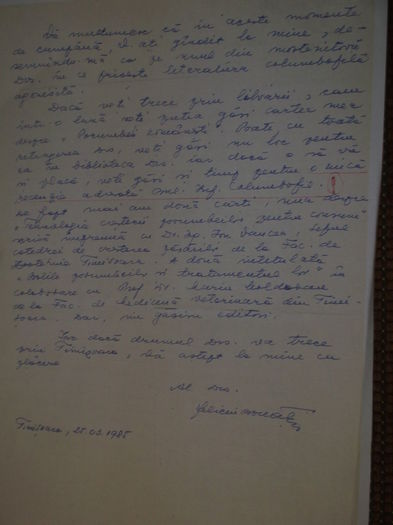 Vă mulțumesc că în aceste momente
de cumpănă, D. ați gîndit la mine,
Dvs. în ce privește literatura columbofilă
Dacă veți trece prin librării, cam
într-o lună veți putea găsi cartea mea
despre "Porumbei românești". Poate, cu toată
Dvs, veți găsi un loc pentru
ea în biblioteca Dvs. iar dacă o să vă
și placă, veți găsi și timp pentru o mică
recenzie Columbofil.
mai am două cărți, una despre
"Tehnologia creșterii porumbeilor pentru
împreună cu Dr. ing. Ion Vancea, șeful
catedrei de creșterea păsărilor de la Fac. de
Zootehnie Timișoara. A doua intitulată
"Bolile porumbeilor și tratamentul lor" în
colaborare cu Prof. dr. Marin Moldovan
de la Fac. de Medicină Veterinară din Timi-
șoara. Dar, nu găsim editori.
Iar dacă drumul Dvs. va trece
prin Timișoara, Vă aștept la mine cu
plăcere
Al Dvs.
Timișoara, 25.03.1985